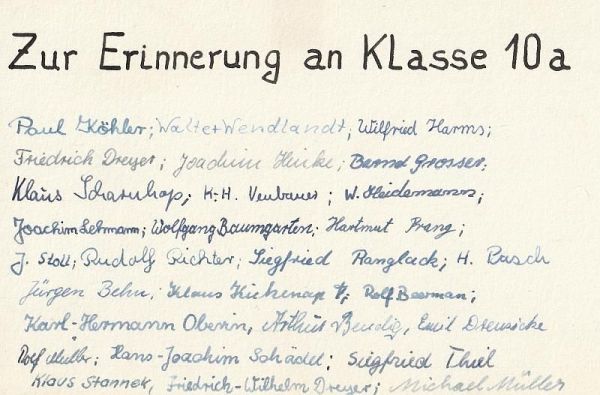 Zur Erinnerung an Klasse 10a
Paul Köhler; Walter Wendlandt; Wilfried Harms;
Friedrich Dreyer; Joachim Hinke; Bernd Grosser;
Klaus Scharnhop; K.-H. Neubauer; W. Heidemann;
Joachim Lehmann; Wolfgang Baumgarten; Hartmut Prang;
J. Stoll; Rudolf Richter; Siegfried Ranglack; H. Rasch
Jürgen Behn; Klaus Rolf Beerman;
Karl-Hermann Oberin, Arthur Bendig, Emil
Rolf Müller; Hans-Joachim Schädel; Siegfried Thiel
Klaus Stannek, Friedrich-Wilhelm Dreyer; Michael Müller